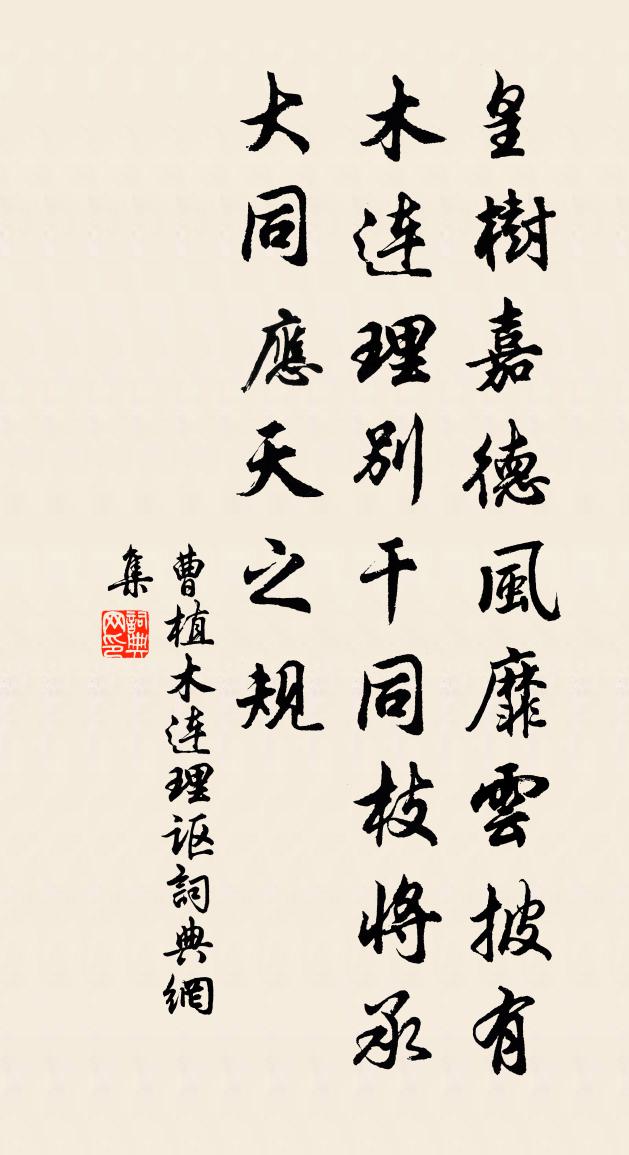 皇樹嘉德風靡雲披有
木連理別干同枝將承
大同應天之規
曹植木連理讴詞典網
集
詞典
网印